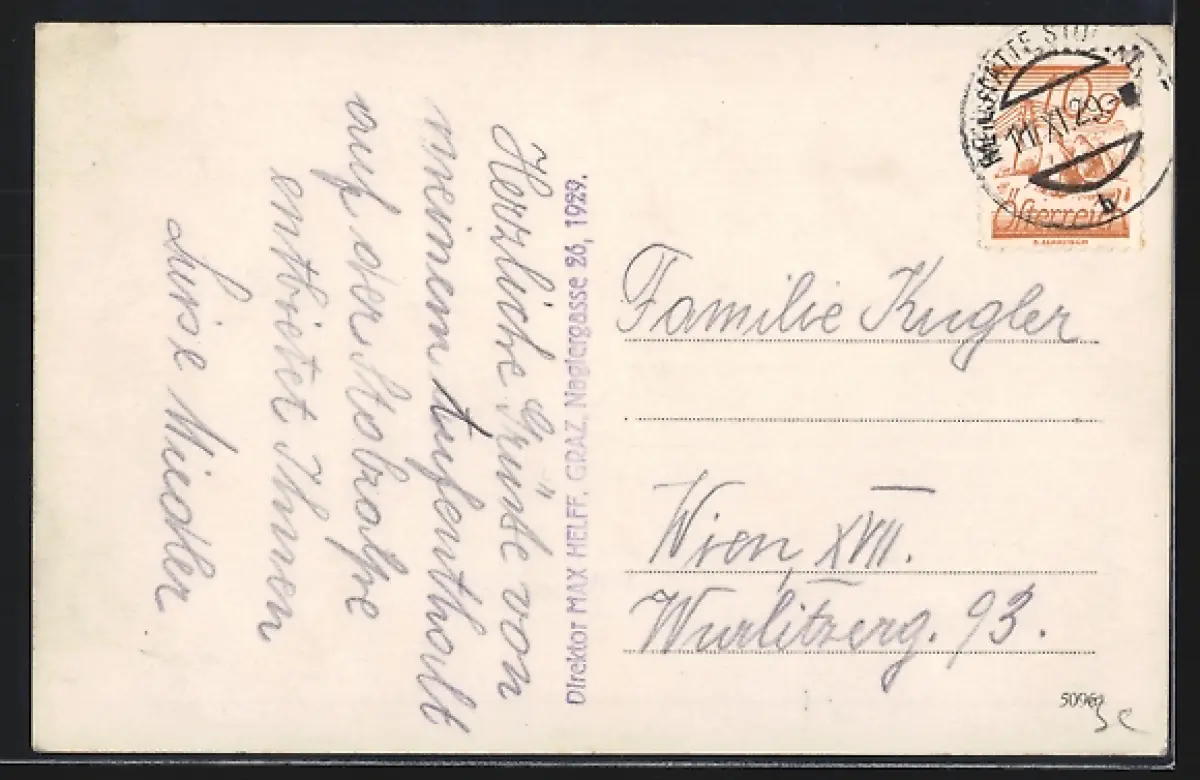 Herzliche Grüße von
meinem Aufenthalt
auf der Stolzalpe
entbietet Ihnen
Luise Miedler
Direktor MAX HELFF, GRAZ, Naglergasse 26, 1929.
11 XI 29
b
Österreich
Familie Kugler
Wien, XVII.
Wurlitzerg. 93.